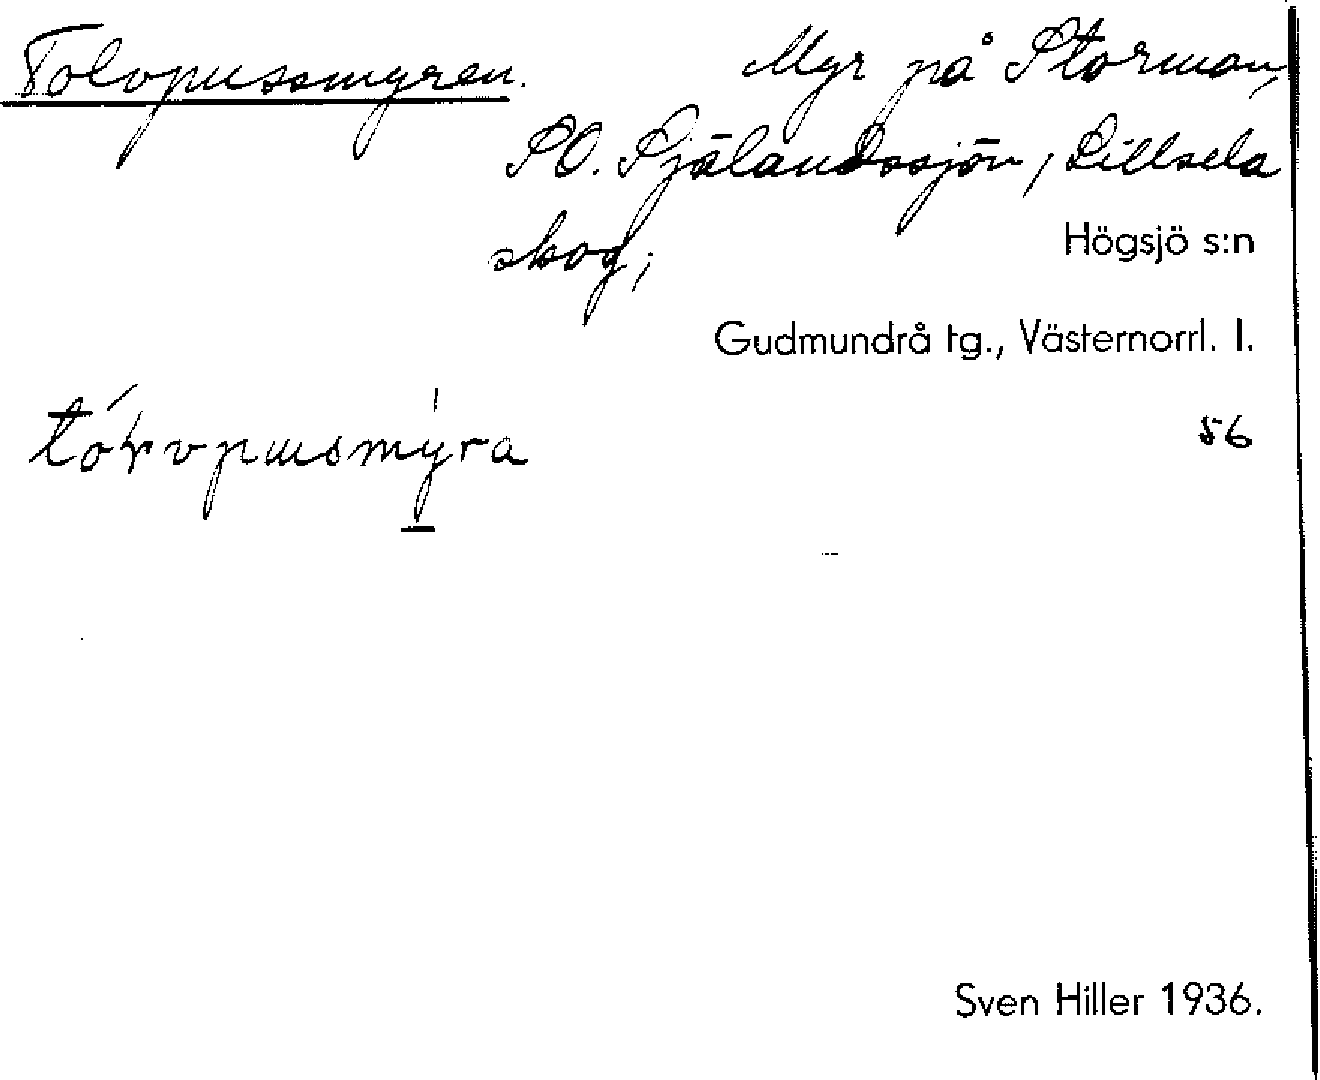 Tolvpussmyren. Myr på Storman,
SO. Själandssjön, Lillsela
skog,
Högsjö s:n
Gudmundrå tg., Västernorrl. l.
56
Sven Hiller 1936.